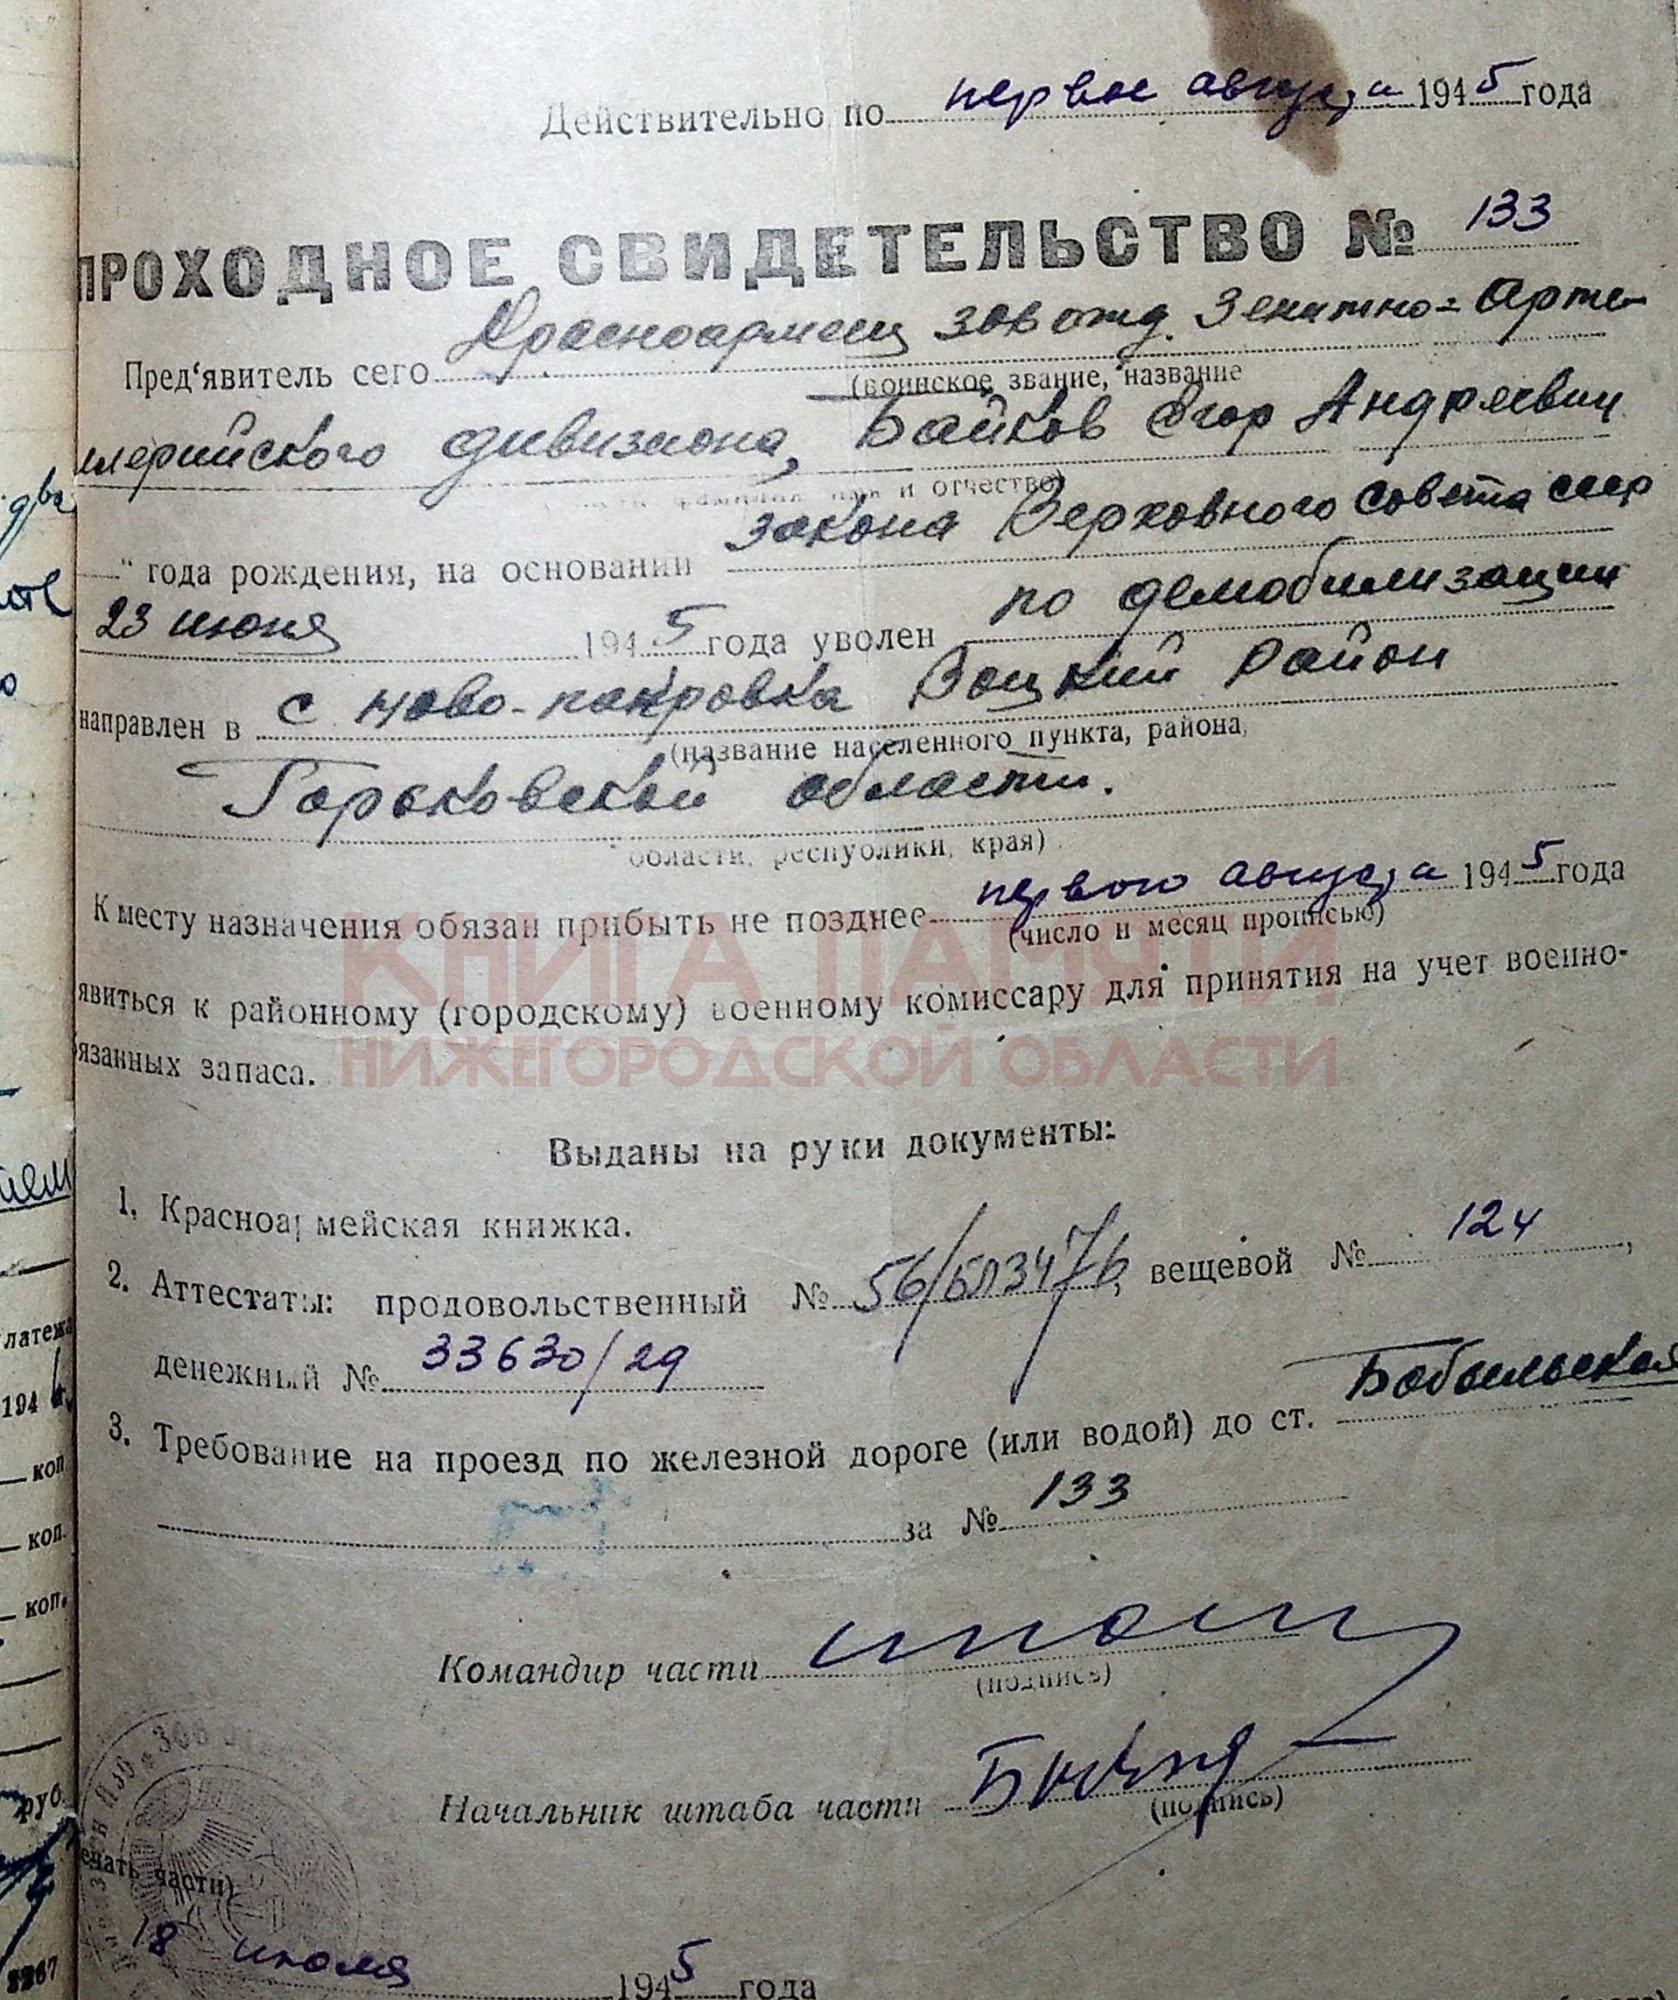 Действительно по первое августа 1945 года
ПРОХОДНОЕ СВИДЕТЕЛЬСТВО № 133
Пред'явитель сего Красноармеец 306 отд. Зенитно=Арти-
(воинское звание, название
ллерийского дивизиона, Байков Егор Андреевич
и отчество)
" года рождения, на основании закона Верховного Совета СССР
23 июня 1945 года уволен по демобилизации
направлен в с Ново-покровка Вацкий Район
(название населенного пункта, района,
Горьковской области.
области, республики, края)
К месту назначения обязан прибыть не позднее первого августа 1945 года
(число и месяц прописью)
КНИГА ПАМЯТИ
явиться к районному (городскому) военному комиссару для принятия на учет военно-
НИЖЕГОРОДСКОЙ ОБЛАСТИ
язанных запаса.
Выданы на руки документы:
1. Красноармейская книжка.
2. Аттестаты: продовольственный № 56/БЛ3476, вещевой № 124,
денежный № 33630/29
3. Требование на проезд по железной дороге (или водой) до ст. Бобыльская
за № 133
Командир части
(подпись)
Начальник штаба части
(подпись)
ечать части)
18 июля 1945 года
латежа
194
коп
коп.
коп.
руб.